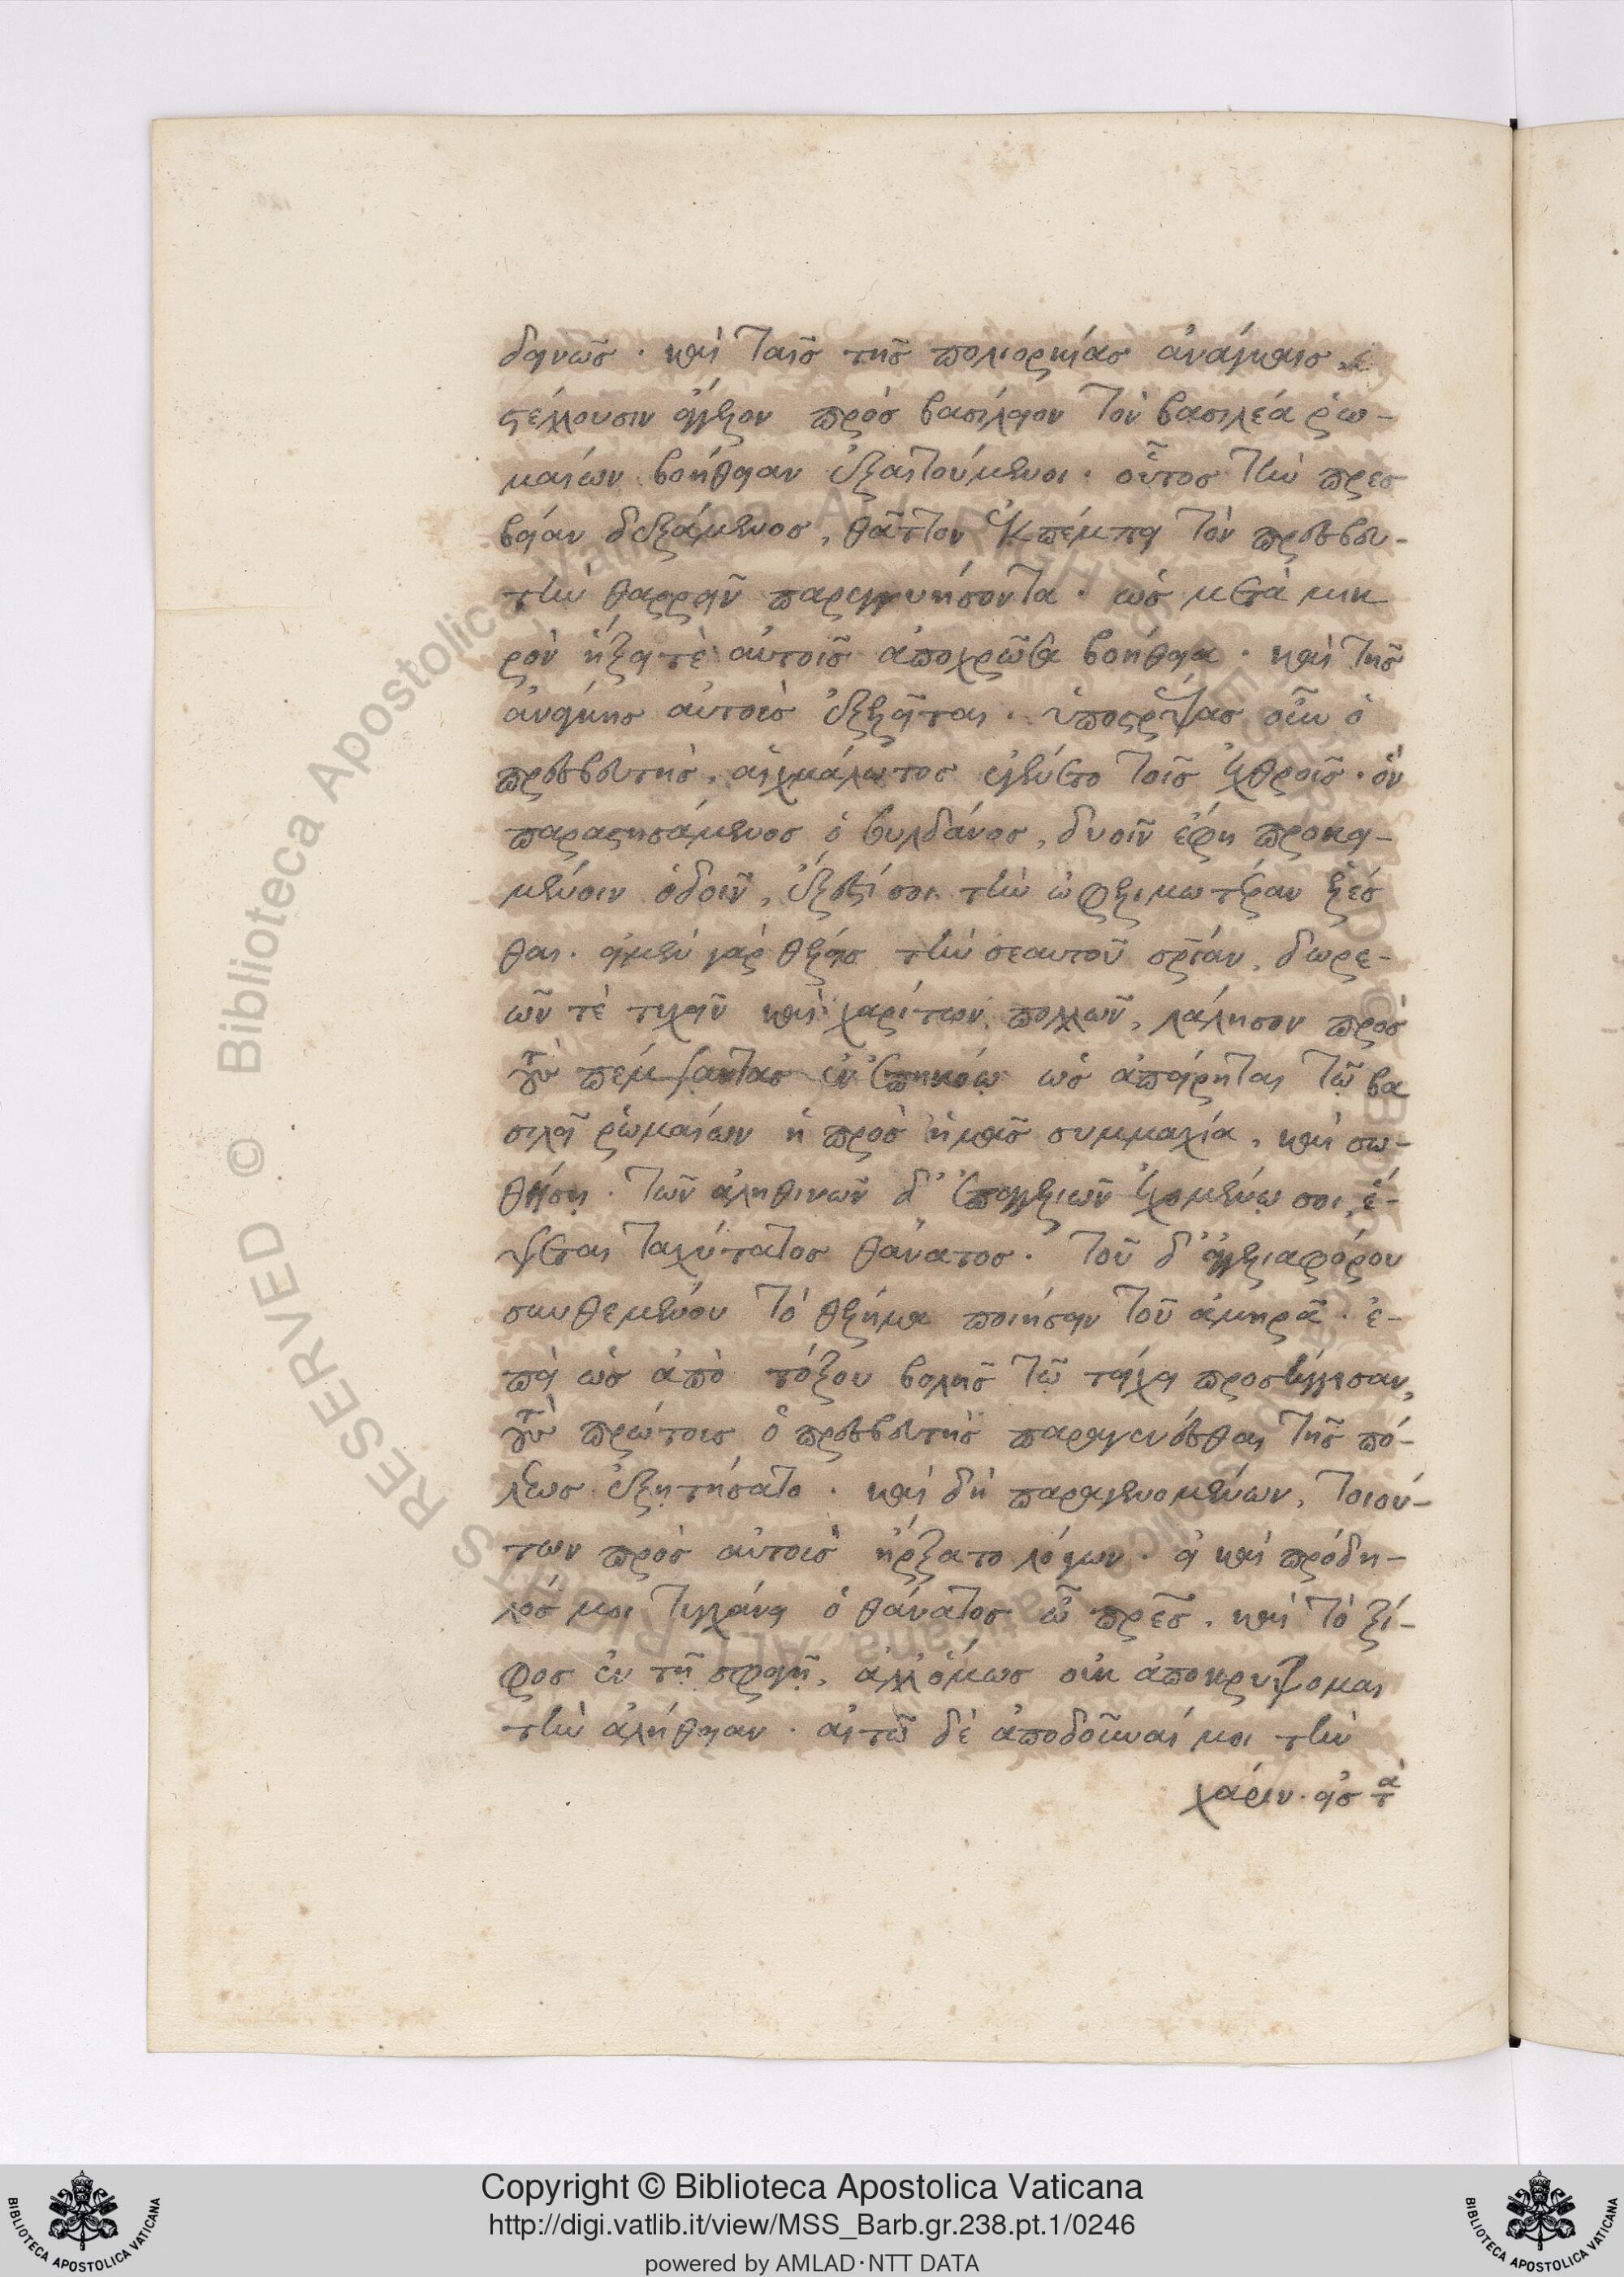 δεινῶς · καὶ ταῖς τῆς πολιορκίας ἀνάγκαις,
στέλλουσιν ἄγγελον πρὸς βασίλειον τὸν βασιλέα ῥω-
μαίων βοήθειαν ἐξαιτούμενοι · οὗτος τὴν πρεσ
βείαν δεξάμενος, θᾶττον ἐκπέμπει τὸν πρεσβευ-
τὴν θαρρεῖν παρεγγυήσοντα · ὡς μετὰ μικ
ρὸν ἥξει τὲ αὐτοῖς ἀποχρῶσα βοήθεια · καὶ τῆς
ἀνάγκης αὐτοὺς ἐξελεῖται · ὑποστρέψας οὖν ὁ
πρεσβευτὴς, αἰχμάλωτος ἐγένετο τοῖς ἐχθροῖς · ὃν
παραστησάμενος ὁ σουλδάνος, δυοῖν ἔφη προκει-
μένοιν ὁδοῖν, ἔξεστί σοι τὴν ὠφελιμωτέραν ἑλέσ
θαι · εἰ μὲν γὰρ θέλεις τὴν σεαυτοῦ σρίαν, δωρε-
ῶν τὲ τυχεῖν καὶ χαρίτων πολλῶν, λάλησον πρὸς
τοὺς πέμψαντας ἐν ἐπηκόῳ ὡς ἀπείρηται τῷ βα
σιλεῖ ῥωμαίων ἡ πρὸς ἡμᾶς συμμαχία, καὶ σω-
θήσῃ · τῶν ἀληθινῶν δ' ἐπαγγελιῶν ἐχομένῳ σοι, ἕ-
ψεται ταχύτατος θάνατος · τοῦ δ' ἀγγελιαφόρου
συνθεμένου τὸ θέλημα ποιήσειν τοῦ ἀμηρᾶ · ἐ-
πεὶ ὡς ἀπὸ τόξου βολῆς τῷ τείχει προσήγγισαν,
τοὺς πρώτους ὁ πρεσβευτὴς παραγενέσθαι τῆς πό-
λεως ἐξῃτήσατο · καὶ δὴ παραγενομένων, τοιού-
των πρὸς αὐτοὺς ἤρξατο λόγων · εἰ καὶ πρόδη-
λός μοι τυγχάνει ὁ θάνατος ὦ πρες, καὶ τὸ ξί-
φος ἐν τῇ σφαγῇ, ἀλλ' ὅμως οὐκ ἀποκρύψομαι
τὴν ἀλήθειαν · αἰτῶ δὲ ἀποδοῦναί μοι τὴν
χάριν · εἰς τὰ
Copyright © Biblioteca Apostolica Vaticana
http://digi.vatlib.it/view/MSS_Barb.gr.238.pt.1/0246
powered by AMLAD·NTT DATA
BIBLIOTECA APOSTOLICA VATICANA
BIBLIOTECA APOSTOLICA VATICANA